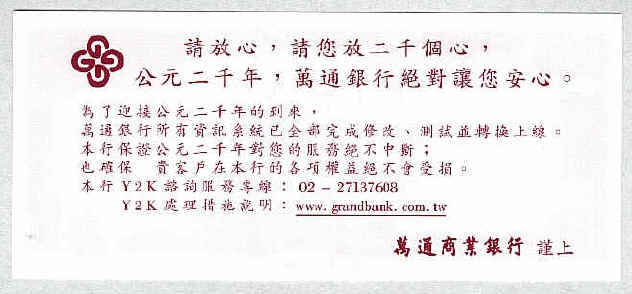 請放心，請您放二千個心，
公元二千年，萬通銀行絕對讓您安心。
為了迎接公元二千年的到來，
萬通銀行所有資訊系統已全部完成修改、測試並轉換上線。
本行保證公元二千年對您的服務絕不中斷；
也確保　貴客戶在本行的各項權益絕不會受損。
本行 Y2K 諮詢服務專線：02 - 27137608
Y2K 處理措施說明：www. grandbank. com. tw
萬通商業銀行 謹上